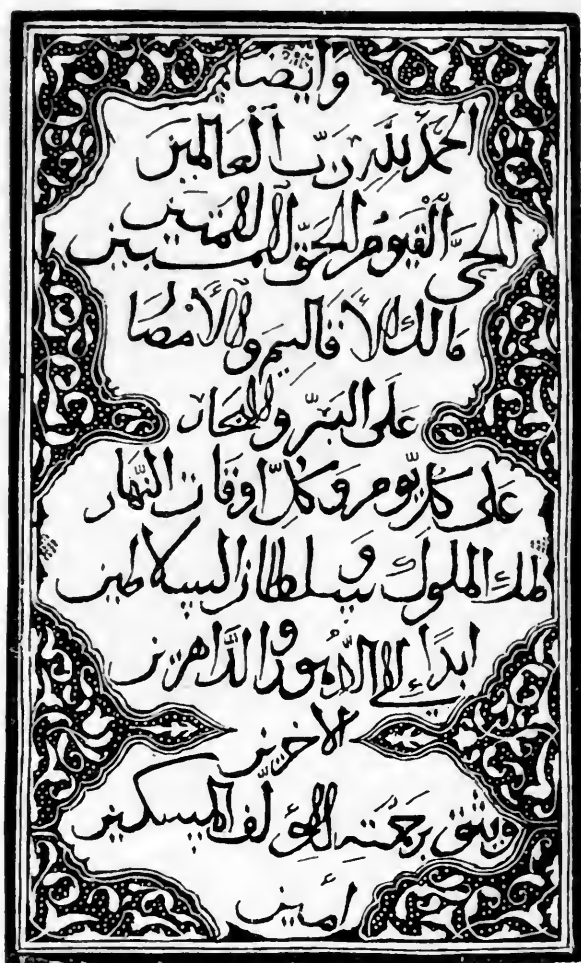 وَايضًا
الحمدُ للهِ رَبِّ الْعَالمين
الحيَّ الْقيّومُ الحقّ المتين المبين
مَالك الأقَاليم والأمصَا
عَلَى البَرّ والبحار
عَلى كل يَّوم وَكلّ اوقات النَّهار
ملك الملُوك وسلطان السلاطين
ابدًا إلى الدّهور والدَّاهرين
الاخرين
ويثق برحمَتهِ المؤلف المسكين
امين